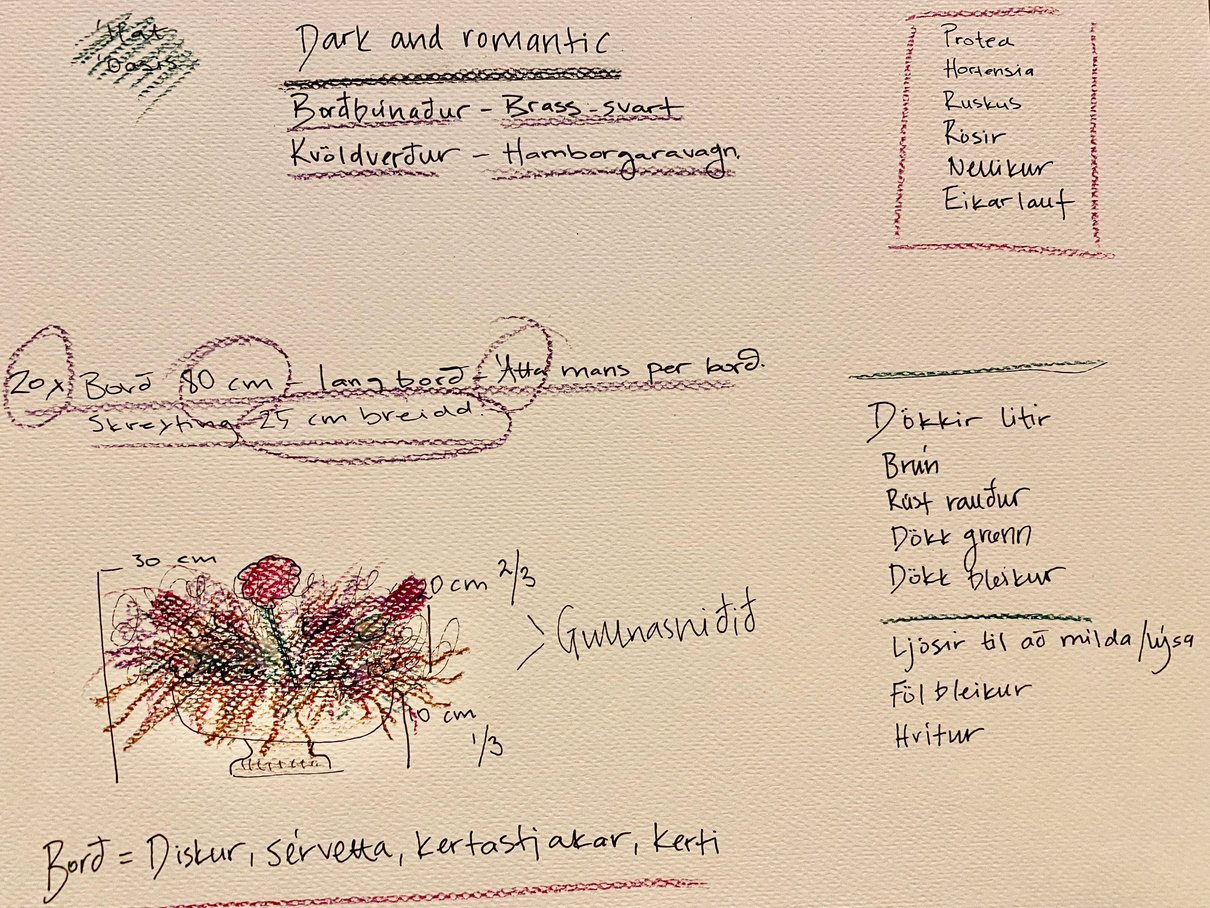 Dark and romantic
Borðbúnaður - Brass - svart
Kvöldverður - Hamborgaravagn.
Protea
Hortensia
Ruskus
Rósir
Nellikur
Eikarlauf
20x Borð 80 cm - langborð - Átta mans per borð.
Skreyting 25 cm breidd.
Dökkir litir
Brún
Rúst rauður
Dökk grænn
Dökk bleikur
Ljósir til að milda/lýsa
Föl bleikur
Hvítur
30 cm
0 cm 2/3
Gullnasniðið
10 cm
1/3
Borð = Diskur, sérvetta, kertastjakar, kerti